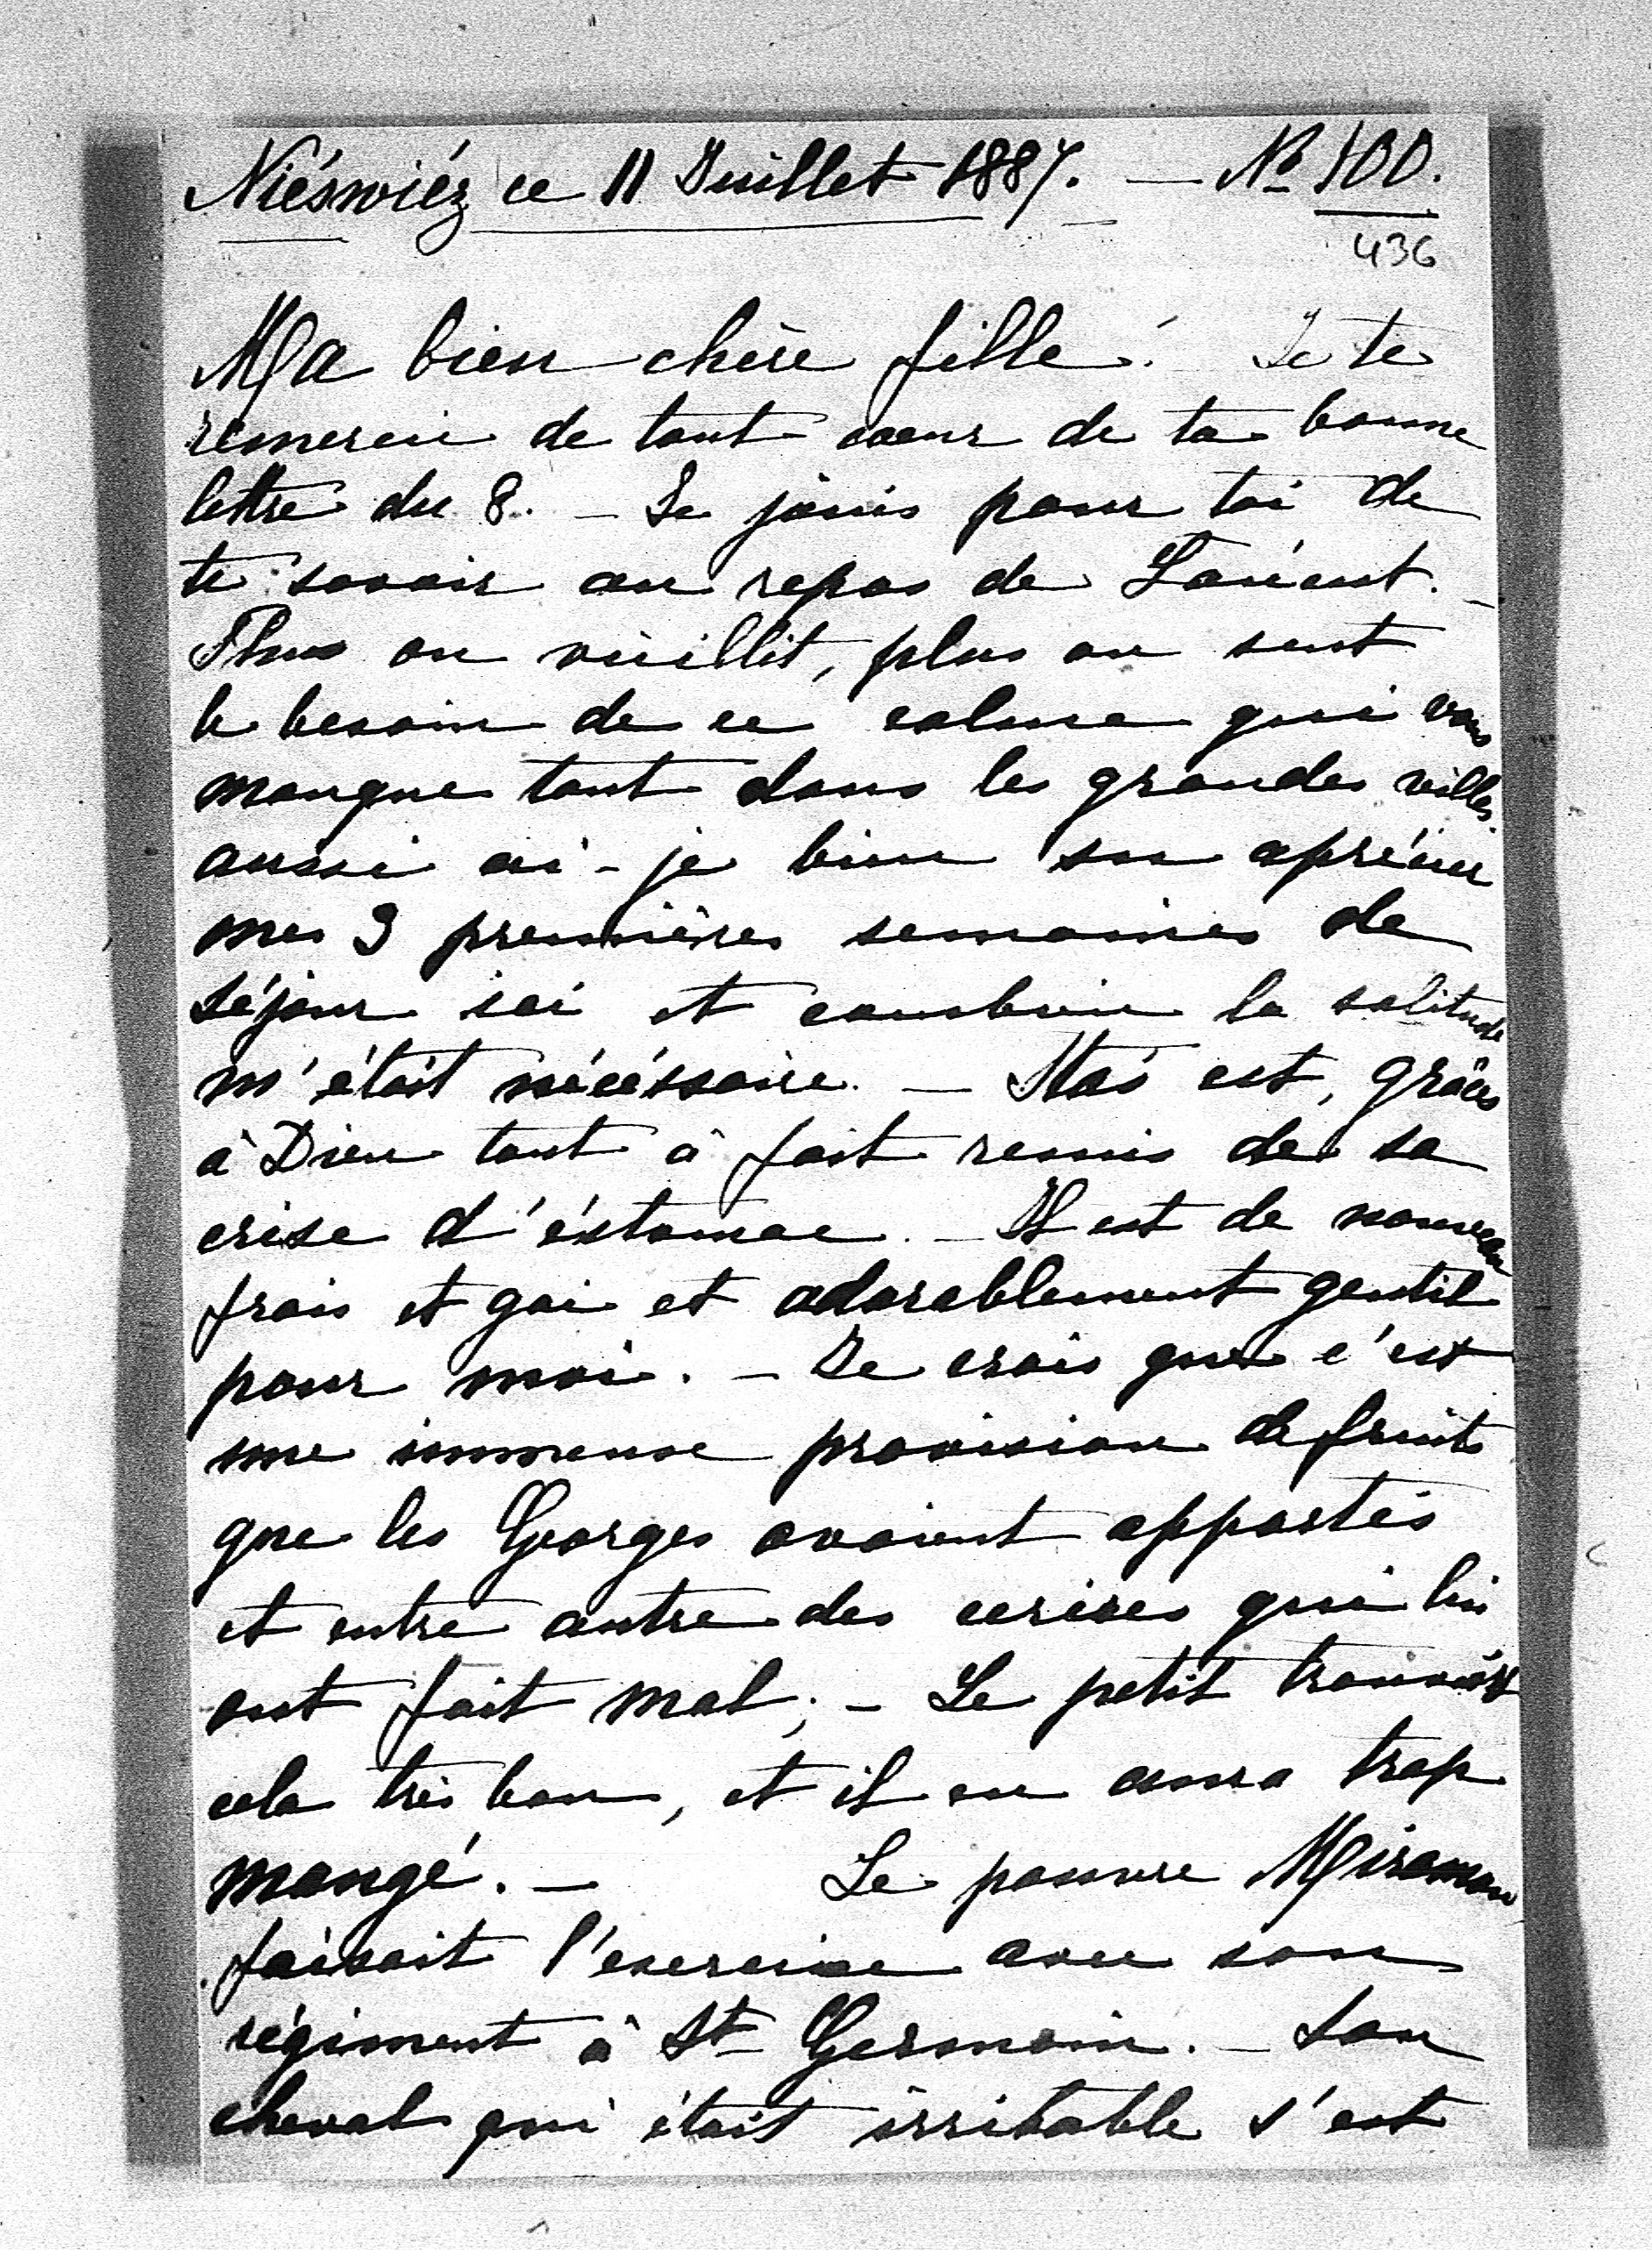 Niéswiéz ce 11 Juillet 1887. — No 100.
436
Ma bien chère fille! Je te
remercie de tout coeur de ta bonne
lettre du 8. — Je jouis pour toi de
te savoir au repos de
Plus on vieillit, plus on sent
le besoin de ce calme qui vous
manque tant dans les grandes villes
aussi ai-je bien su aprécier
mes 3 premières semaines de
séjour ici et combien la solitude
m'était nécéssaire. — Staś est, grâces
à Dieu tout à fait remis de sa
crise d'éstomac. — Il est de nouveau
frais et gai et adorablement gentil
pour moi. — Je crois que c'est
une immense provision de fruits
que les Georges avaient apportés
et entre autre des cerises qui lui
ont fait mal; — Le petit trouvait
cela très bon, et il en aura trop
mangé. — Le pauvre Miramon
faisait l'exercice avec son
régiment à St Germain. — Son
cheval qui était irritable s'est